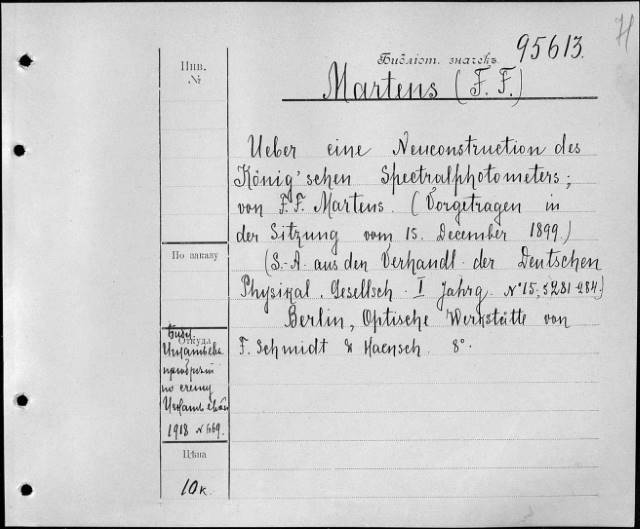 Н
Библіот. значекъ
95613.
Martens (F. F.)
Инв.
№
Ueber eine Neuconstruction des
König'schen Spectralphotometers;
von F. F. Martens. (Vorgetragen in
der Sitzung vom 15. December 1899.)
(S.-A. aus den Verhandl. der Deutschen
Physikal. Gesellsch. I Jahrg. №15. S 281-284.)
Berlin, Optische Werkstätte von
F. Schmidt & Haensch. 8°.
По заказу
Откуда
по счету
1918 №669.
Цѣна
10 к.